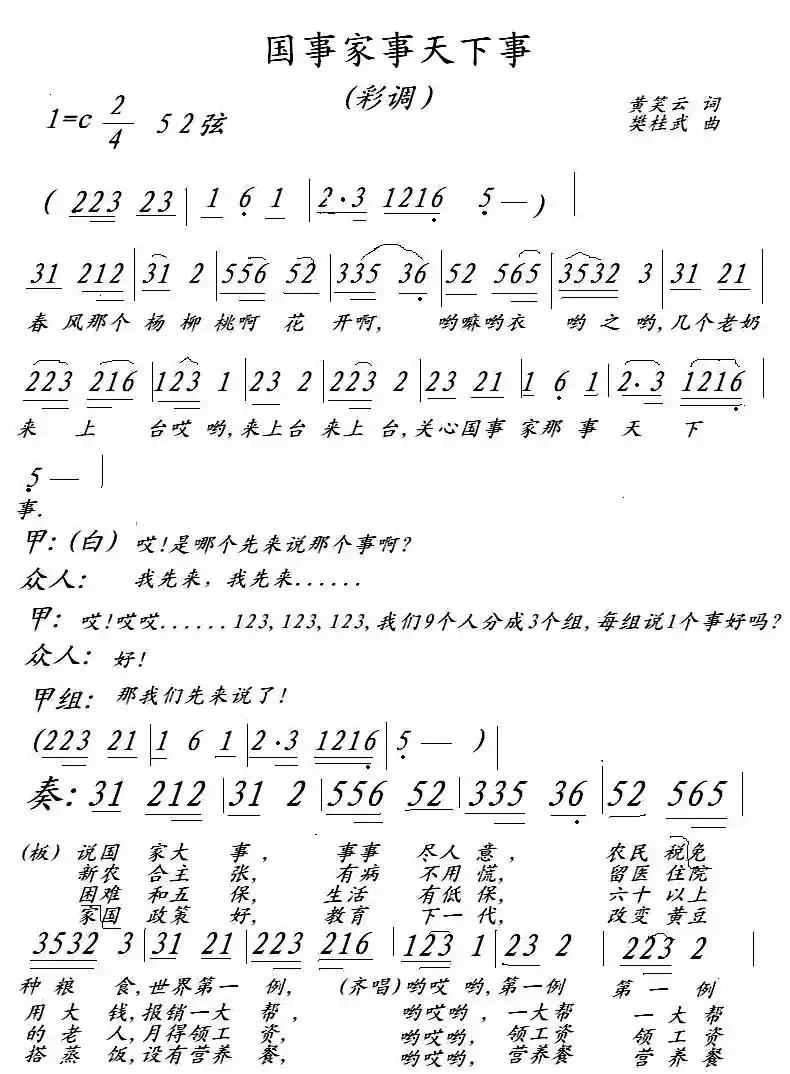 国事家事天下事
(彩调)
1=c 2/4 5 2弦
黄笑云 词
樊桂武 曲
( 223 23 | 1 6 1 | 2·3 1216 5 — ) |
31 212 | 31 2 | 556 52 | 335 36 | 52 565 | 3532 3 | 31 21 |
春 风那个 杨 柳 桃啊 花 开啊, 哟嘛哟衣 哟 之 哟,几个老奶
223 216 | 123 1 | 23 2 | 223 2 | 23 21 | 1 6 1 | 2·3 1216 |
来 上 台哎 哟,来上台 来上 台,关心国事 家那 事 天 下
5 — |
事.
甲:(白) 哎!是哪个先来说那个事啊?
众人: 我先来, 我先来......
甲: 哎!哎哎......123,123,123,我们9个人分成3个组,每组说1个事好吗?
众人: 好!
甲组: 那我们先来说了!
(223 21 | 1 6 1 | 2·3 1216 | 5 — )
奏: 31 212 | 31 2 | 556 52 | 335 36 | 52 565 |
(板) 说国 家大 事, 事事 尽人 意, 农民 税免
新农 合主 张, 有病 不用 慌, 留医 住院
困难 和五 保, 生活 有低 保, 六十 以上
家国 政策 好, 教育 下一 代, 改变 黄豆
3532 3 | 31 21 | 223 216 | 123 1 | 23 2 | 223 2
种 粮 食,世界第一 例, (齐唱)哟哎 哟,第一例 第 一 例
用 大 钱,报销一大 帮, 哟哎哟, 一大帮 一 大 帮
的 老 人,月得领工 资, 哟哎哟, 领工资 领 工 资
搭 蒸 饭,设有营养 餐, 哟哎哟, 营养餐 营 养 餐